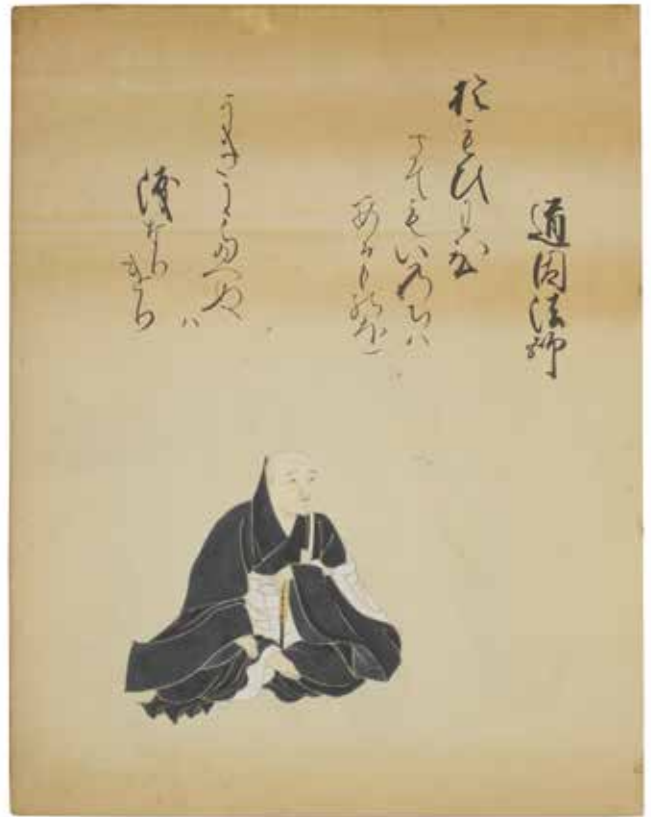 道因法師
於もひわひ
さてもいのちハ
あるものを
うきにたへぬ
ハ
涙なり
けり